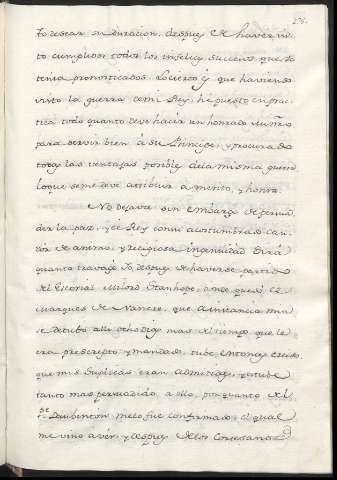 to desear su duracion, despues de haver visto
cumplidos todos los infelices sucesos, que yo
tenia pronosticados. Lo cierto es que haviendo
visto la guerra en mi Rey, hé puesto en prac
tica todo quanto deve hacer un honrado
para servir bien á su Principe, y procurado
todas las ventajas posibles de la misma guerra
lo que se me deve atribuir a merito, y honra.
No dejé sin embargo de persua
dir la paz, y el Rey con su acostumbrado can
dor de animo, y religiosa ingenuidad dirá
quanto travajé Yo, despues de haverse partido
del Escorial Milord Stanhope, donde quedó el
Marques de Nancré, que a instancia mia
se detubo alli ocho dias mas del tiempo que le
era prescripto y mandado, tube entonces
que mis suplicas eran admitidas, y estube
tanto mas persuadido a ello, por quanto del
Daubinton me lo fue confirmado, el qual
me vino a ver, y despues de los Cortesanos